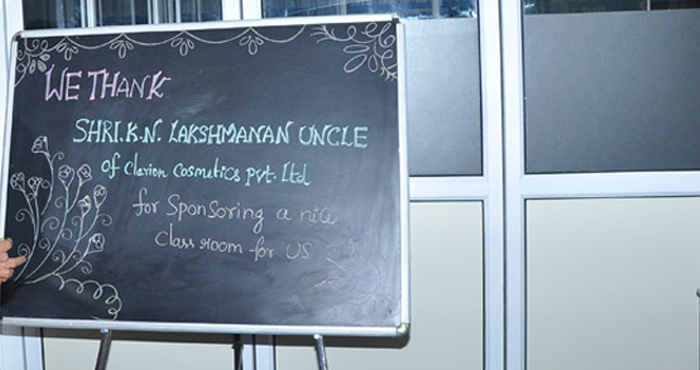 WE THANK
SHRI.K.N. LAKSHMANAN UNCLE
of Clarion Cosmetics pvt. Ltd
for Sponsoring a nice
Class room for US